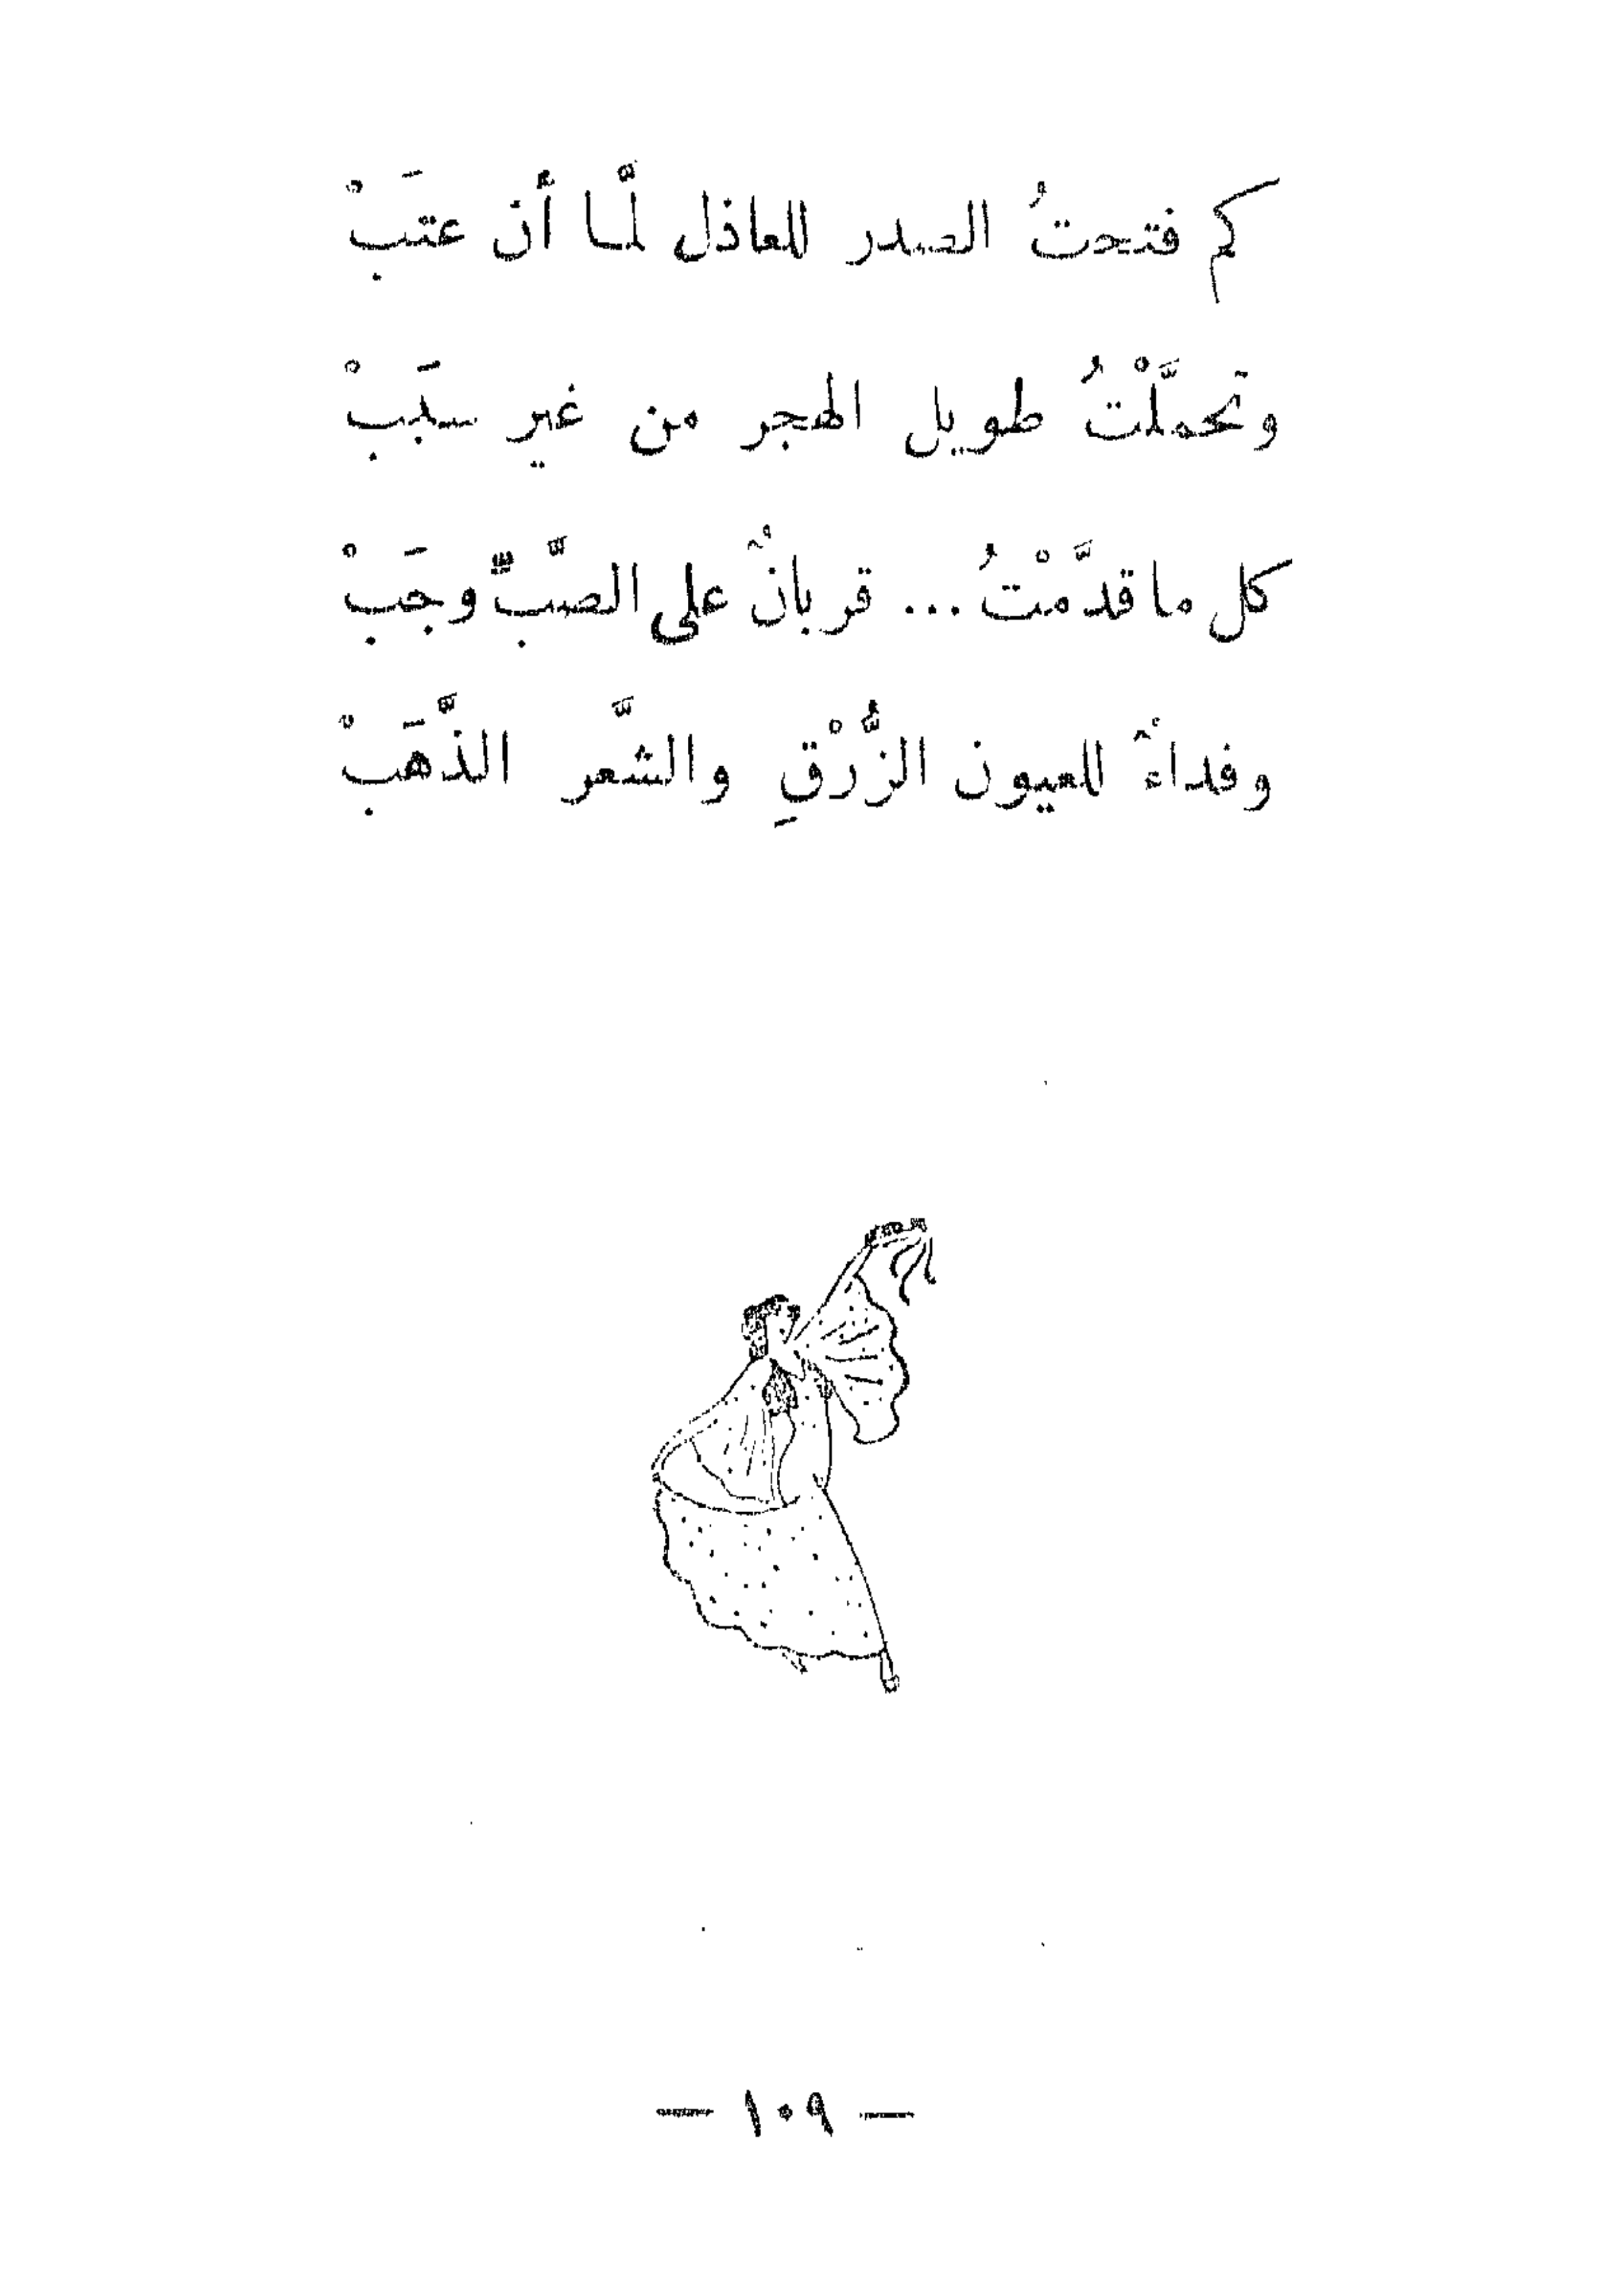 كم فتحتُ الصدر للعاذل لمَّا أن عتَبْ
وتحملَّتْتُ طويل الهجر من غير سبَبْ
كل ما قدَّمْتُ ... قربانٌ على الصَّبِّ وجَبْ
وفداءٌ للعيون الزُّرْقِ والشَّعر الذَّهَبْ
— ١٠٩ —